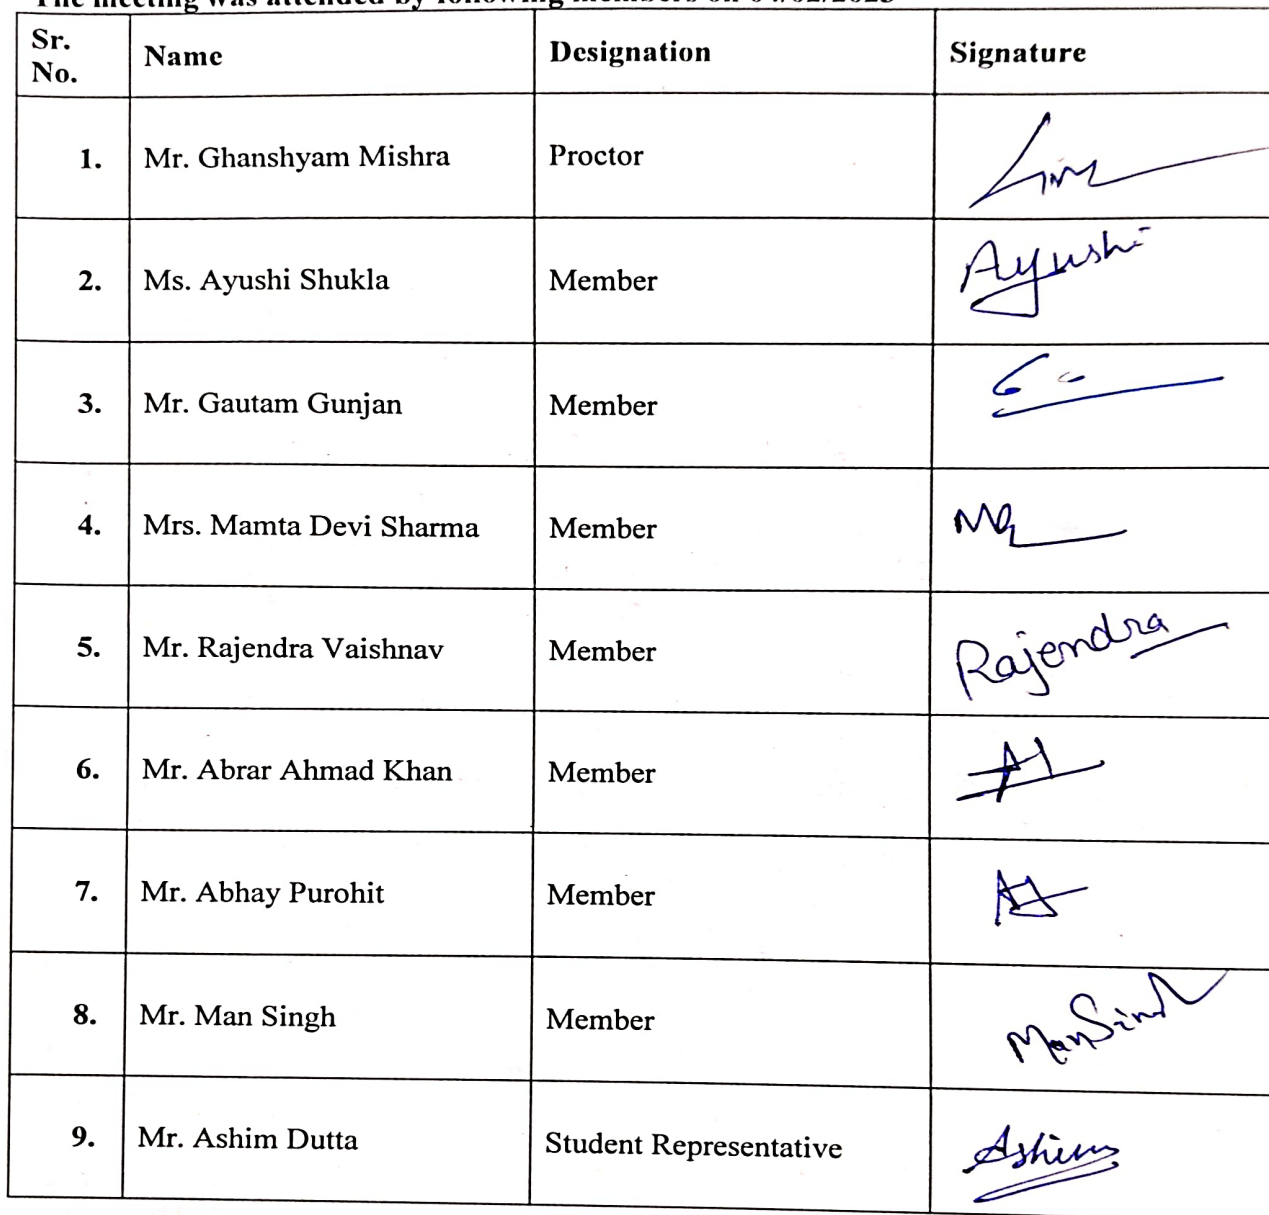 The meeting was attended by following members on 04/02/2023
Sr. No. Name Designation Signature
1. Mr. Ghanshyam Mishra Proctor
2. Ms. Ayushi Shukla Member Ayushi
3. Mr. Gautam Gunjan Member
4. Mrs. Mamta Devi Sharma Member
5. Mr. Rajendra Vaishnav Member Rajendra
6. Mr. Abrar Ahmad Khan Member
7. Mr. Abhay Purohit Member
8. Mr. Man Singh Member ManSingh
9. Mr. Ashim Dutta Student Representative Ashim